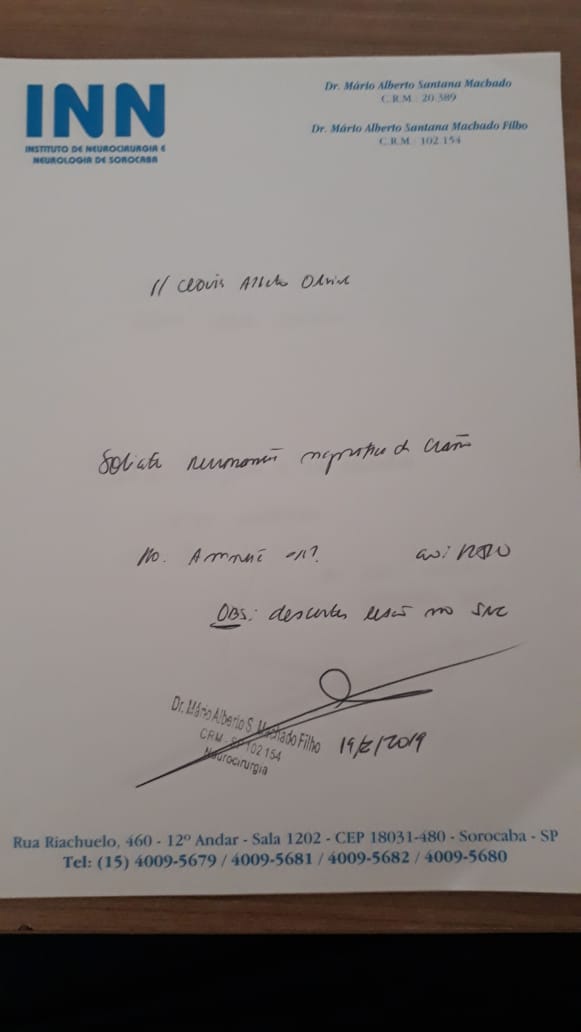 INN
INSTITUTO DE NEUROCIRURGIA E
NEUROLOGIA DE SOROCABA
Dr. Mário Alberto Santana Machado
C.R.M. 20.389
Dr. Mário Alberto Santana Machado Filho
C.R.M. 102.154
// Clovis
magnética de Crânio
OBS: descartar lesão no SNC
Dr. Mário Alberto S. Machado Filho
CRM - SP 102.154
Neurocirurgia
2019
Rua Riachuelo, 460 - 12º Andar - Sala 1202 - CEP 18031-480 - Sorocaba - SP
Tel: (15) 4009-5679 / 4009-5681 / 4009-5682 / 4009-5680